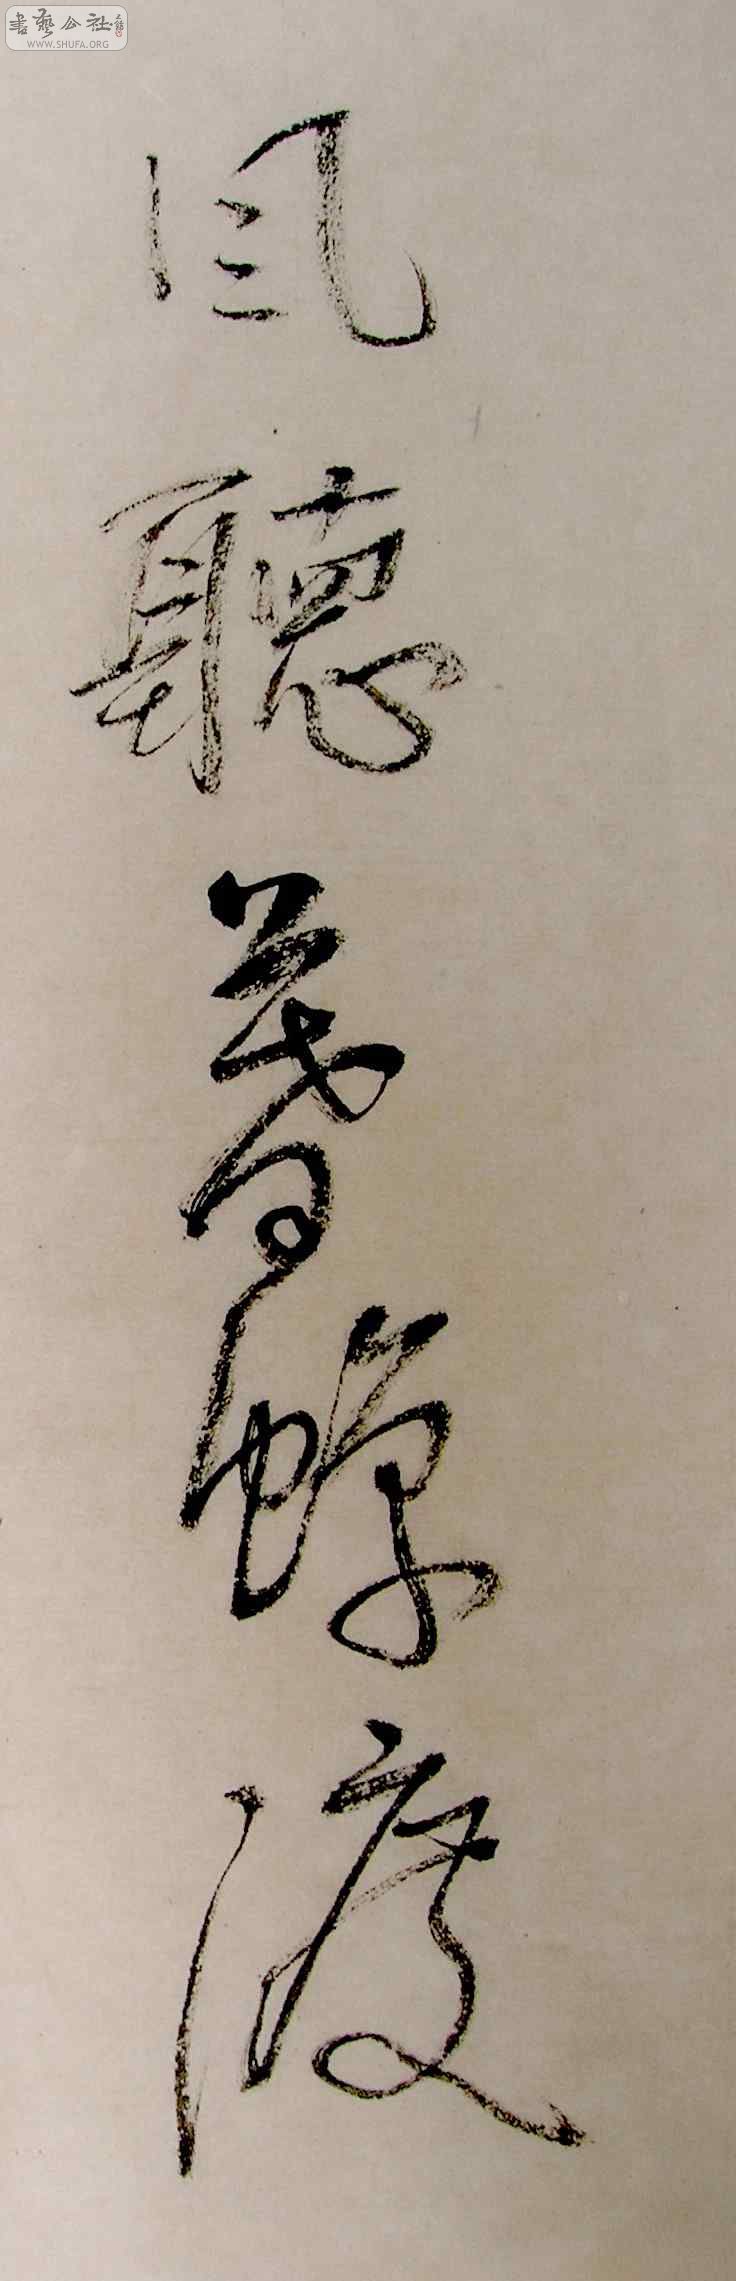 書藝公社
WWW.SHUFA.ORG
風聽暮蟬渡